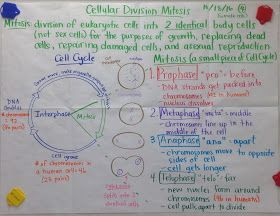 Cellular Division Mitosis
Mitosis division of eukaryotic cells into 2 identical body cells
(not sex cells) for the purposes of growth, replacing dead
cells, repairing damaged cells, and asexual reproduction
Cell Cycle
Mitosis (a small piece of Cell Cycle)
DNA
doubles
# chromosomes
= 92
Interphase
Mitosis
cell grows
# of chromosomes in
a human cell=46
(23 pairs)
cell
splits into 2
identical cells
1. Prophase "pro" = before
- DNA strands get packed into
chromosomes (92 in human)
- nucleus dissolves
2. Metaphase "meta" = middle
- chromosomes line up in the
middle of the cell
3. Anaphase "ana" = apart
- chromosomes move to opposite
sides of cell
- cell gets longer
4. Telophase "telo" = far
- new nuclei form around
chromosomes (46 in humans)
- cell pulls apart to divide